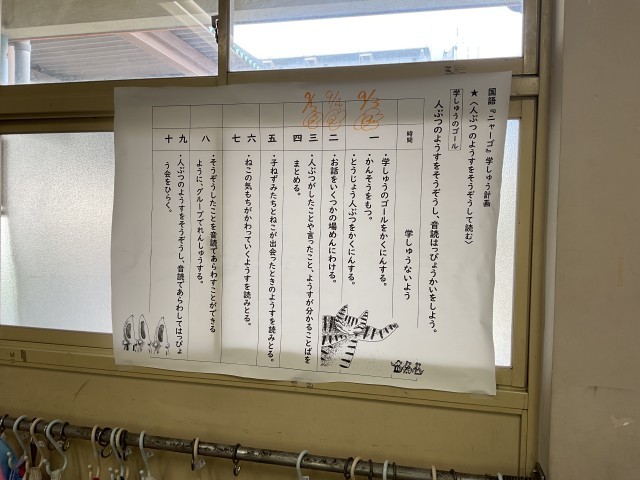 国語『ニャーゴ』学しゅう計画
★〈人ぶつのようすをそうぞうして読む〉
学しゅうのゴール
人ぶつのようすをそうぞうし、音読はっぴょうかいをしよう。
時間
学しゅうないよう
9/3
一
・学しゅうのゴールをかくにんする。
・かんそうをもつ。
・とうじょう人ぶつをかくにんする。
二
・お話をいくつかの場めんにわける。
三
四
・人ぶつがしたことや言ったこと、ようすが分かることばを
まとめる。
五
・子ねずみたちとねこが出会ったときのようすを読みとる。
六
七
・ねこの気もちがかわっていくようすを読みとる。
八
・そうぞうしたことを音読であらわすことができる
ように、グループでれんしゅうする。
九
十
・人ぶつのようすをそうぞうし、音読であらわしてはっぴょ
う会をひらく。